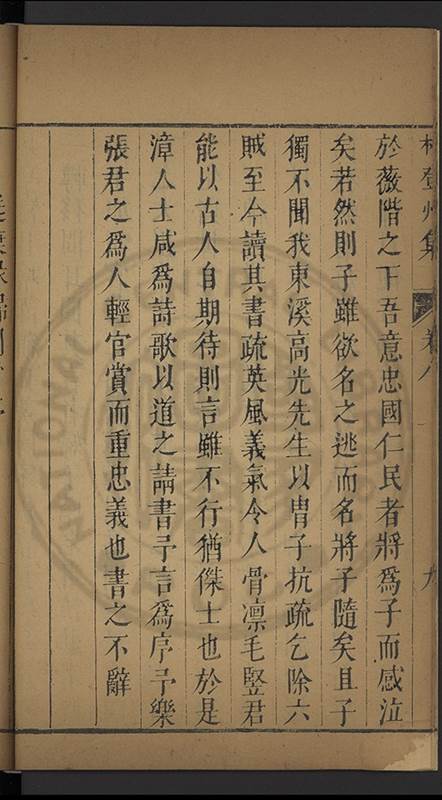 林登州集 卷八 九
於薇階之下吾意忠國仁民者將爲子而感泣
矣若然則子雖欲名之逃而名將子隨矣且子
獨不聞我東溪高光先生以冑子抗疏乞除六
賊至今讀其書疏英風義氣令人骨凛毛竪君
能以古人自期待則言雖不行猶傑士也於是
漳人士咸爲詩歌以道之請書予言爲序予樂
張君之爲人輕官賞而重忠義也書之不辭